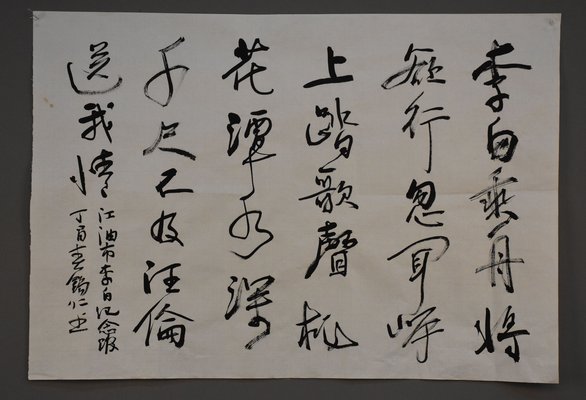 李白乘舟將
欲行忽聞岸
上踏歌聲桃
花潭水深
千尺不及汪倫
送我情
江油市李白紀念館
丁酉 仁书